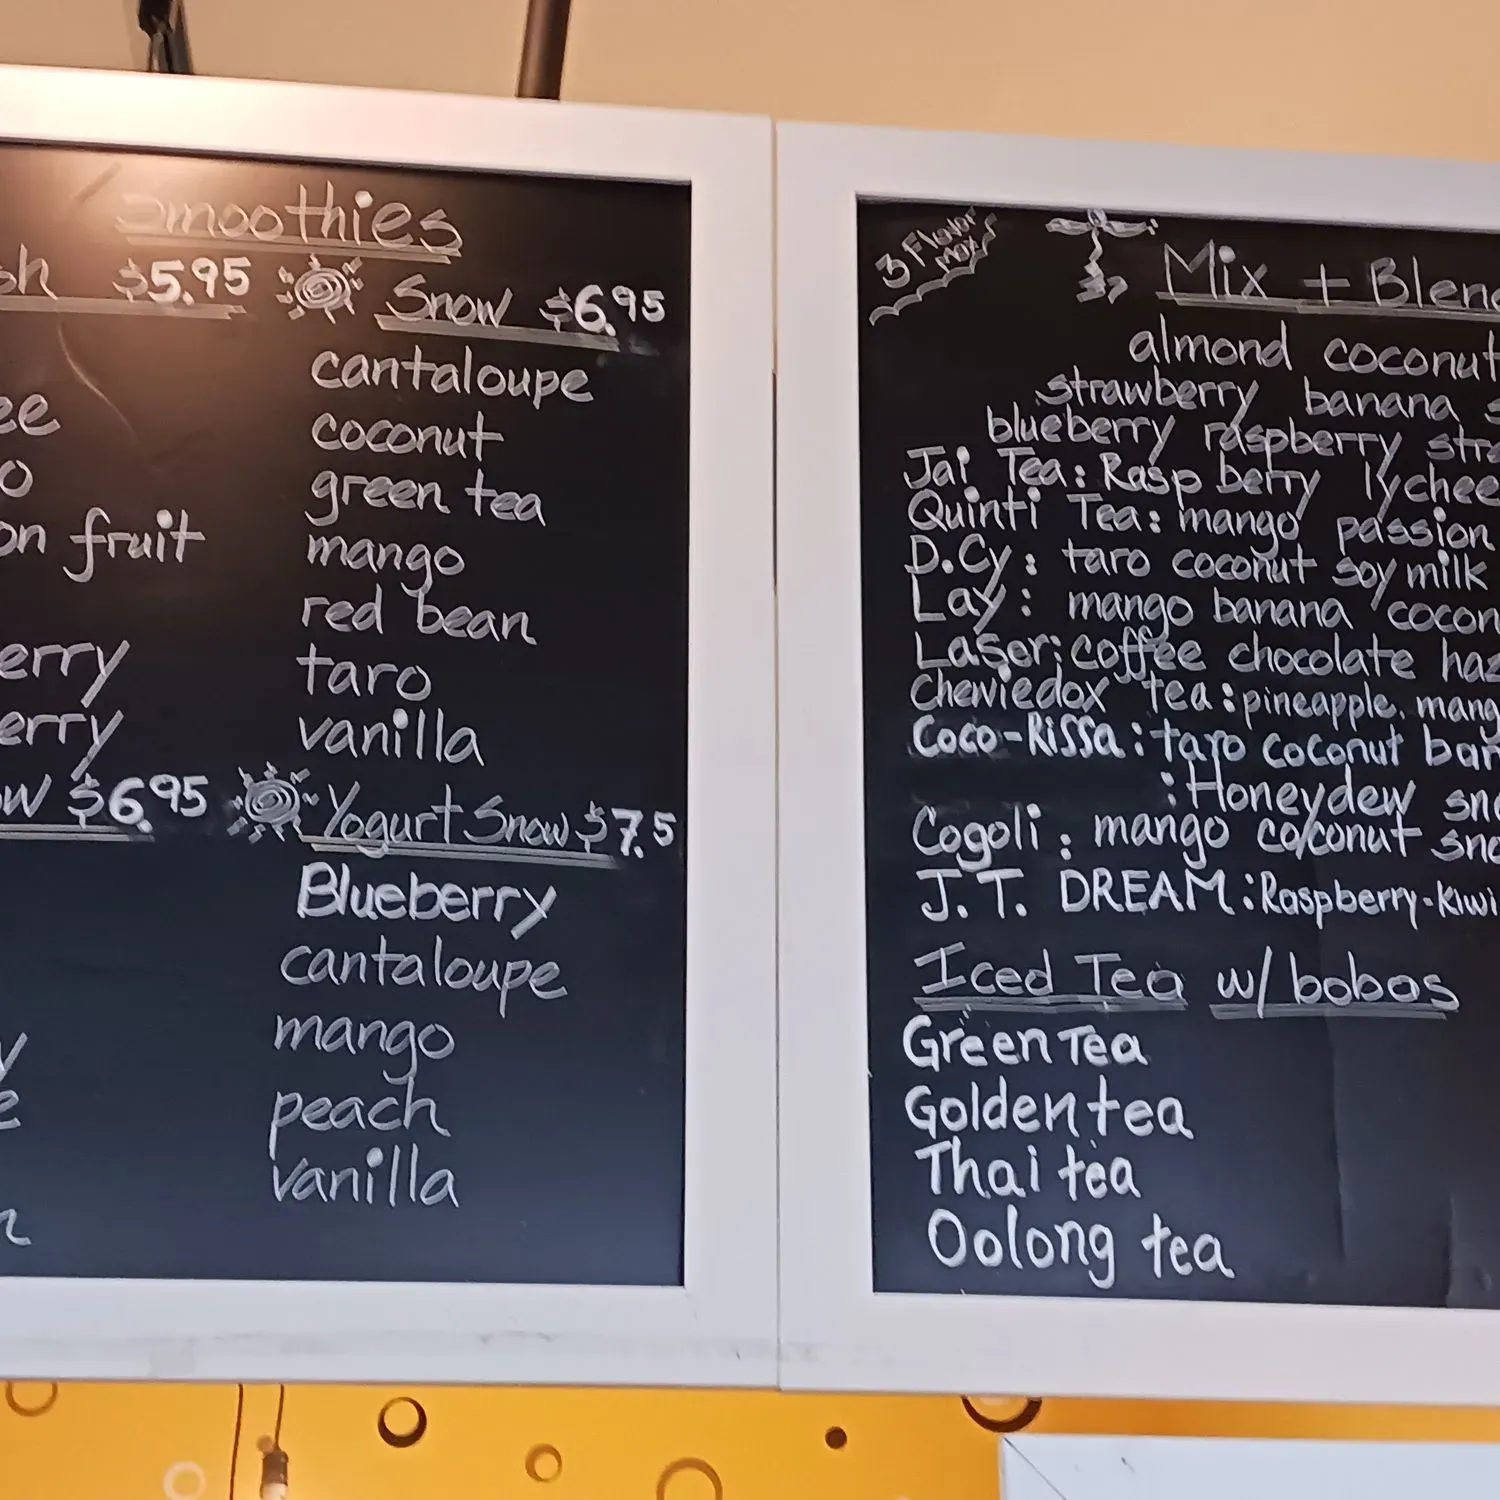 Smoothies
$5.95
Snow $6.95
cantaloupe
coconut
green tea
mango
red bean
taro
vanilla
fruit
$6.95
Yogurt Snow $7.5
Blueberry
cantaloupe
mango
peach
vanilla
3 Flavor Max
Mix + Blend
almond coconut
strawberry banana
blueberry raspberry
Jai Tea: Raspberry lychee
Quinti Tea: mango passion
D.Cy: taro coconut soy milk
Lay: mango banana
Laser: coffee chocolate
Chewiedox tea: pineapple, mang
Coco-Rissa: taro coconut
: Honeydew
Cogoli: mango coconut
J.T. DREAM: Raspberry-Kiwi
Iced Tea w/ bobas
Green Tea
Golden tea
Thai tea
Oolong tea